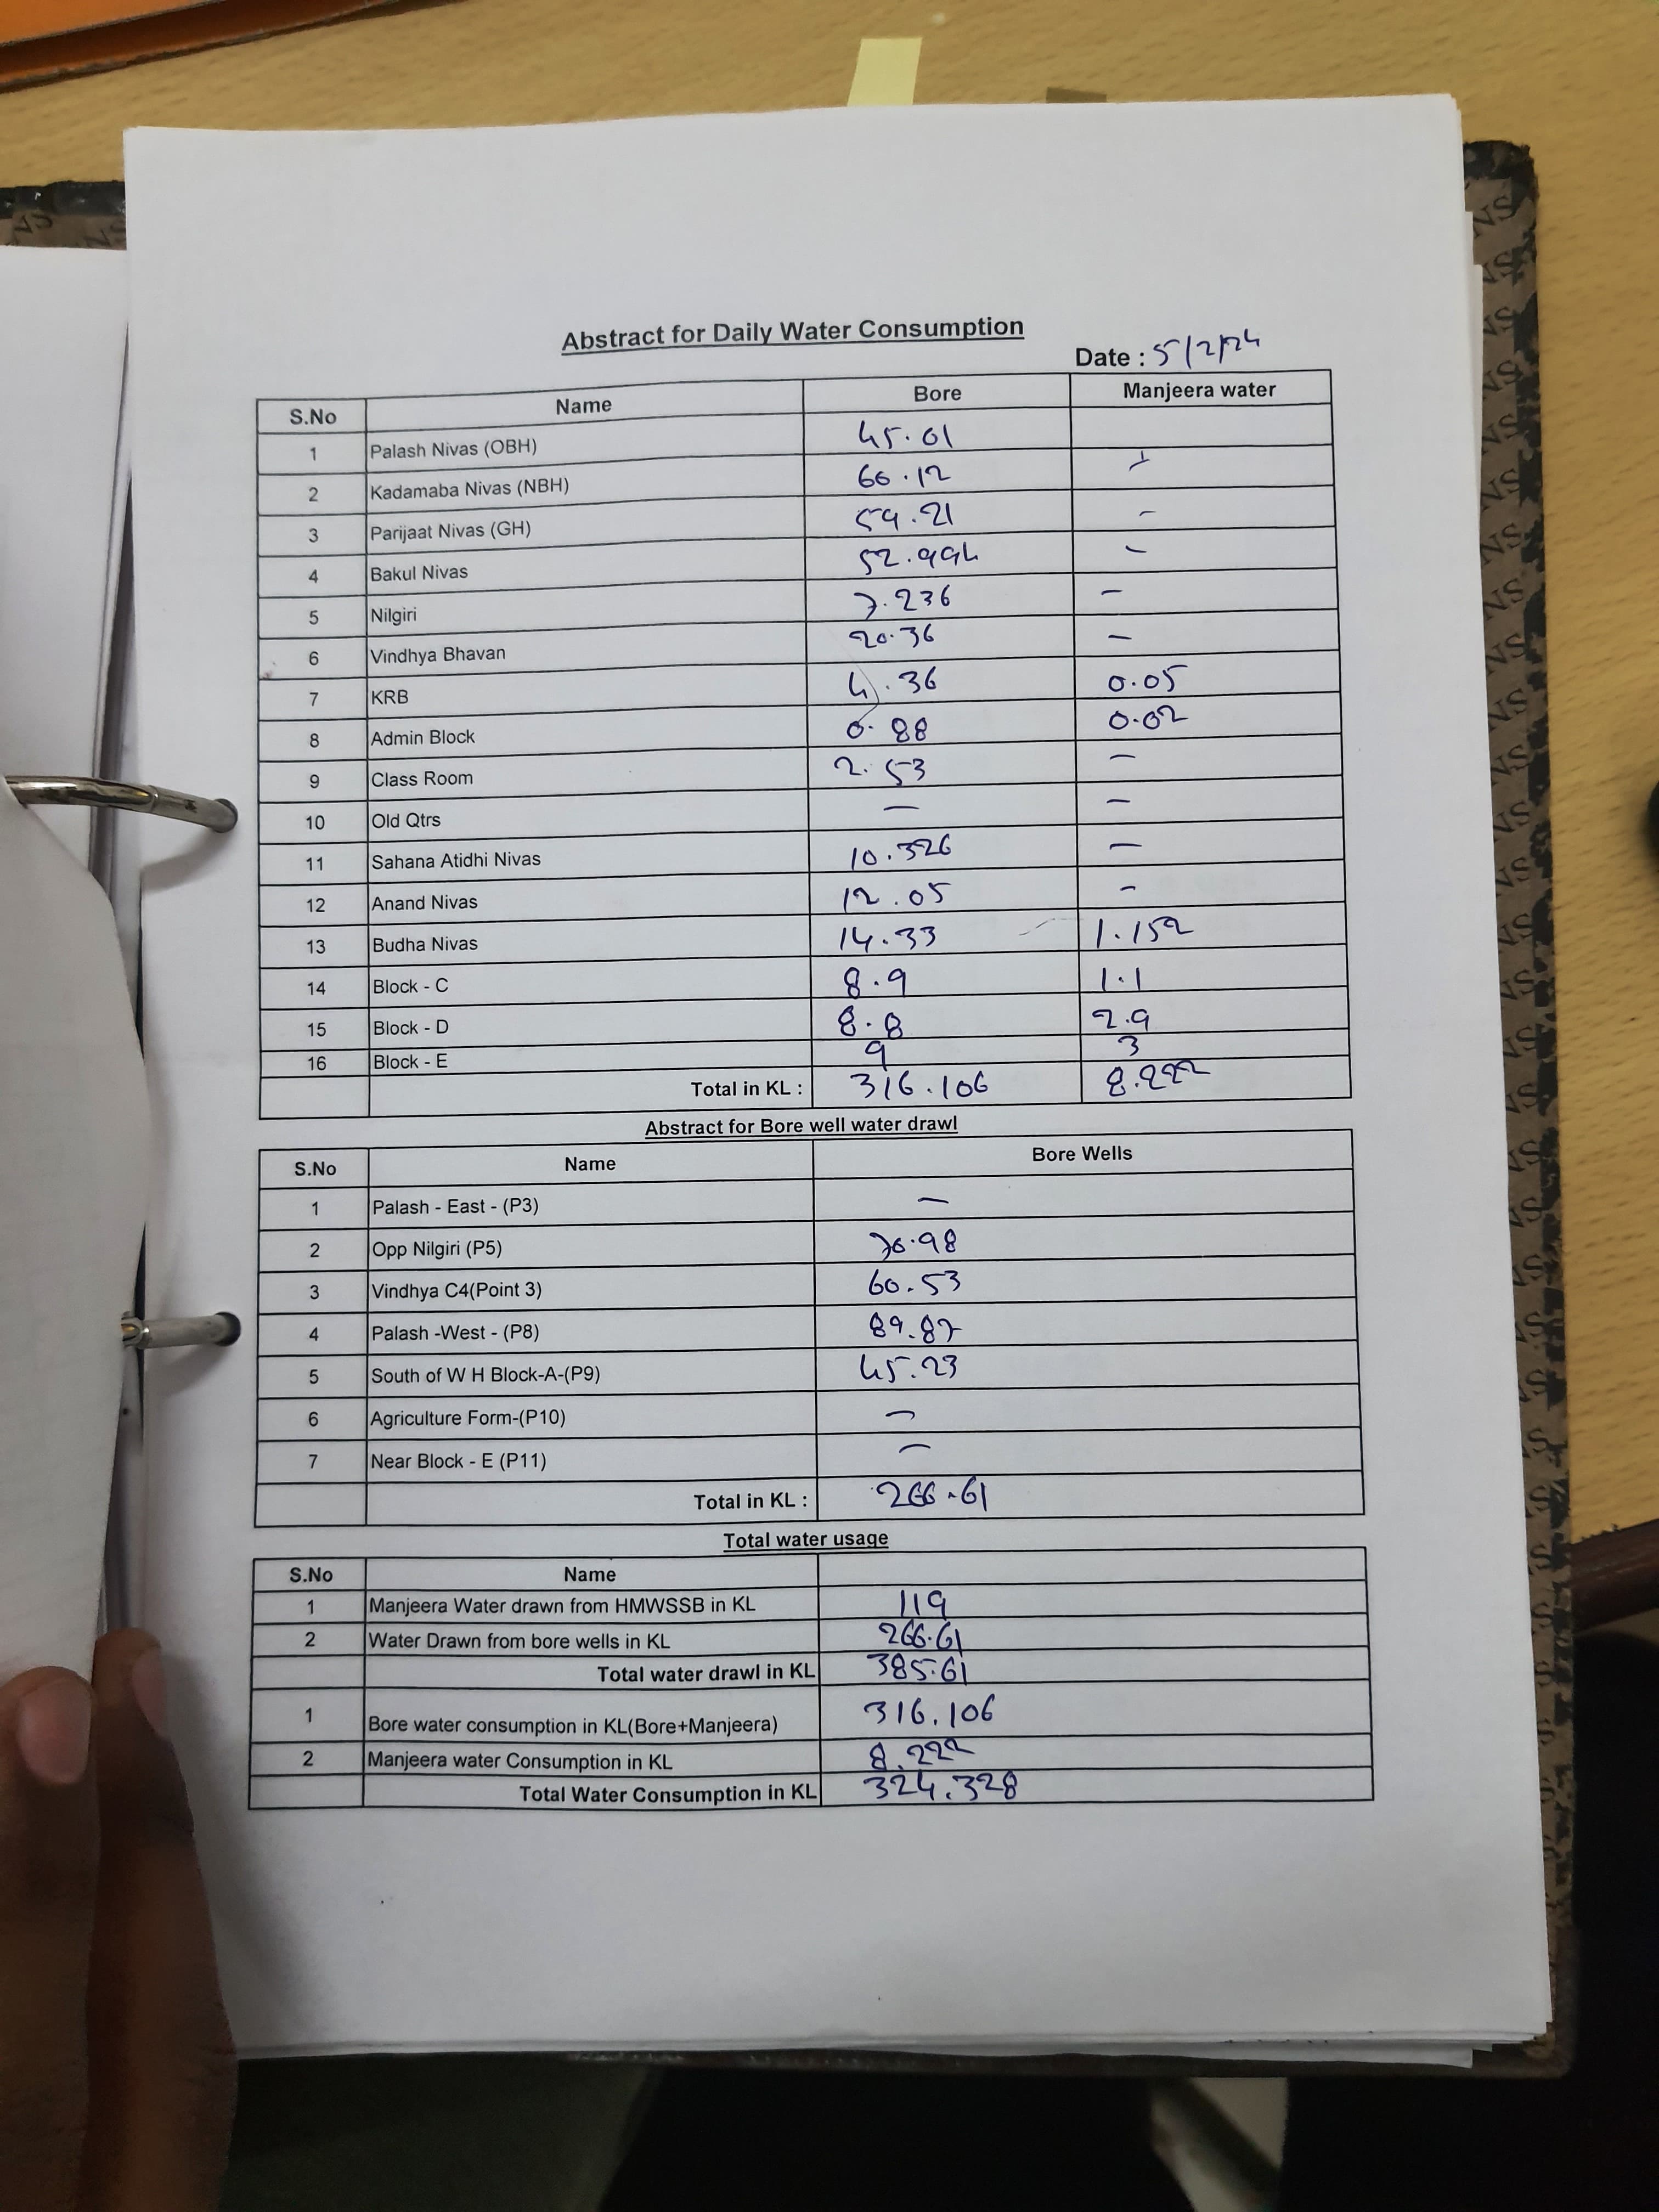 Abstract for Daily Water Consumption
Date : 5/2/24
S.No Name Bore Manjeera water
1 Palash Nivas (OBH) 45.01
2 Kadamaba Nivas (NBH) 60.12 -
3 Parijaat Nivas (GH) 59.21 -
4 Bakul Nivas 52.994 -
5 Nilgiri 7.236 -
6 Vindhya Bhavan 20.36 -
7 KRB 4.36 0.05
8 Admin Block 0.88 0.02
9 Class Room 2.53 -
10 Old Qtrs - -
11 Sahana Atidhi Nivas 10.326 -
12 Anand Nivas 12.05 -
13 Budha Nivas 14.33 1.152
14 Block - C 8.9 1.1
15 Block - D 8.8 2.9
16 Block - E 9 3
Total in KL : 316.106 8.222
Abstract for Bore well water drawl
S.No Name Bore Wells
1 Palash - East - (P3) -
2 Opp Nilgiri (P5) 70.98
3 Vindhya C4(Point 3) 60.53
4 Palash -West - (P8) 89.87
5 South of W H Block-A-(P9) 45.23
6 Agriculture Form-(P10) -
7 Near Block - E (P11) -
Total in KL : 266.61
Total water usage
S.No Name
1 Manjeera Water drawn from HMWSSB in KL 119
2 Water Drawn from bore wells in KL 266.61
Total water drawl in KL 385.61
1 Bore water consumption in KL(Bore+Manjeera) 316.106
2 Manjeera water Consumption in KL 8.222
Total Water Consumption in KL 324.328